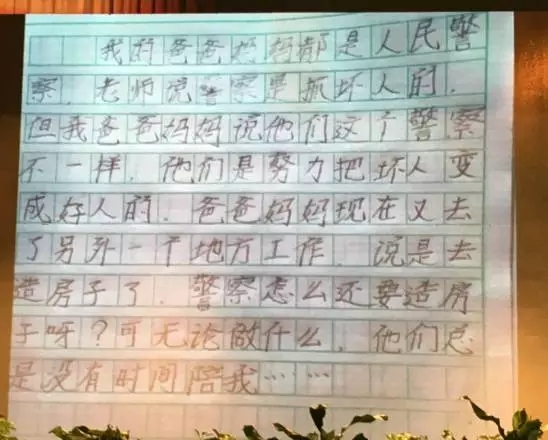 我的爸爸妈妈都是人民警
察.老师说警察是抓坏人的.
但我爸爸妈妈说他们这个警察
不一样.他们是努力把坏人变
成好人的.爸爸妈妈现在又去
了另外一个地方工作.说是去
造房子了.警察怎么还要造房
子呀?可无论做什么.他们总
是没有时间陪我……